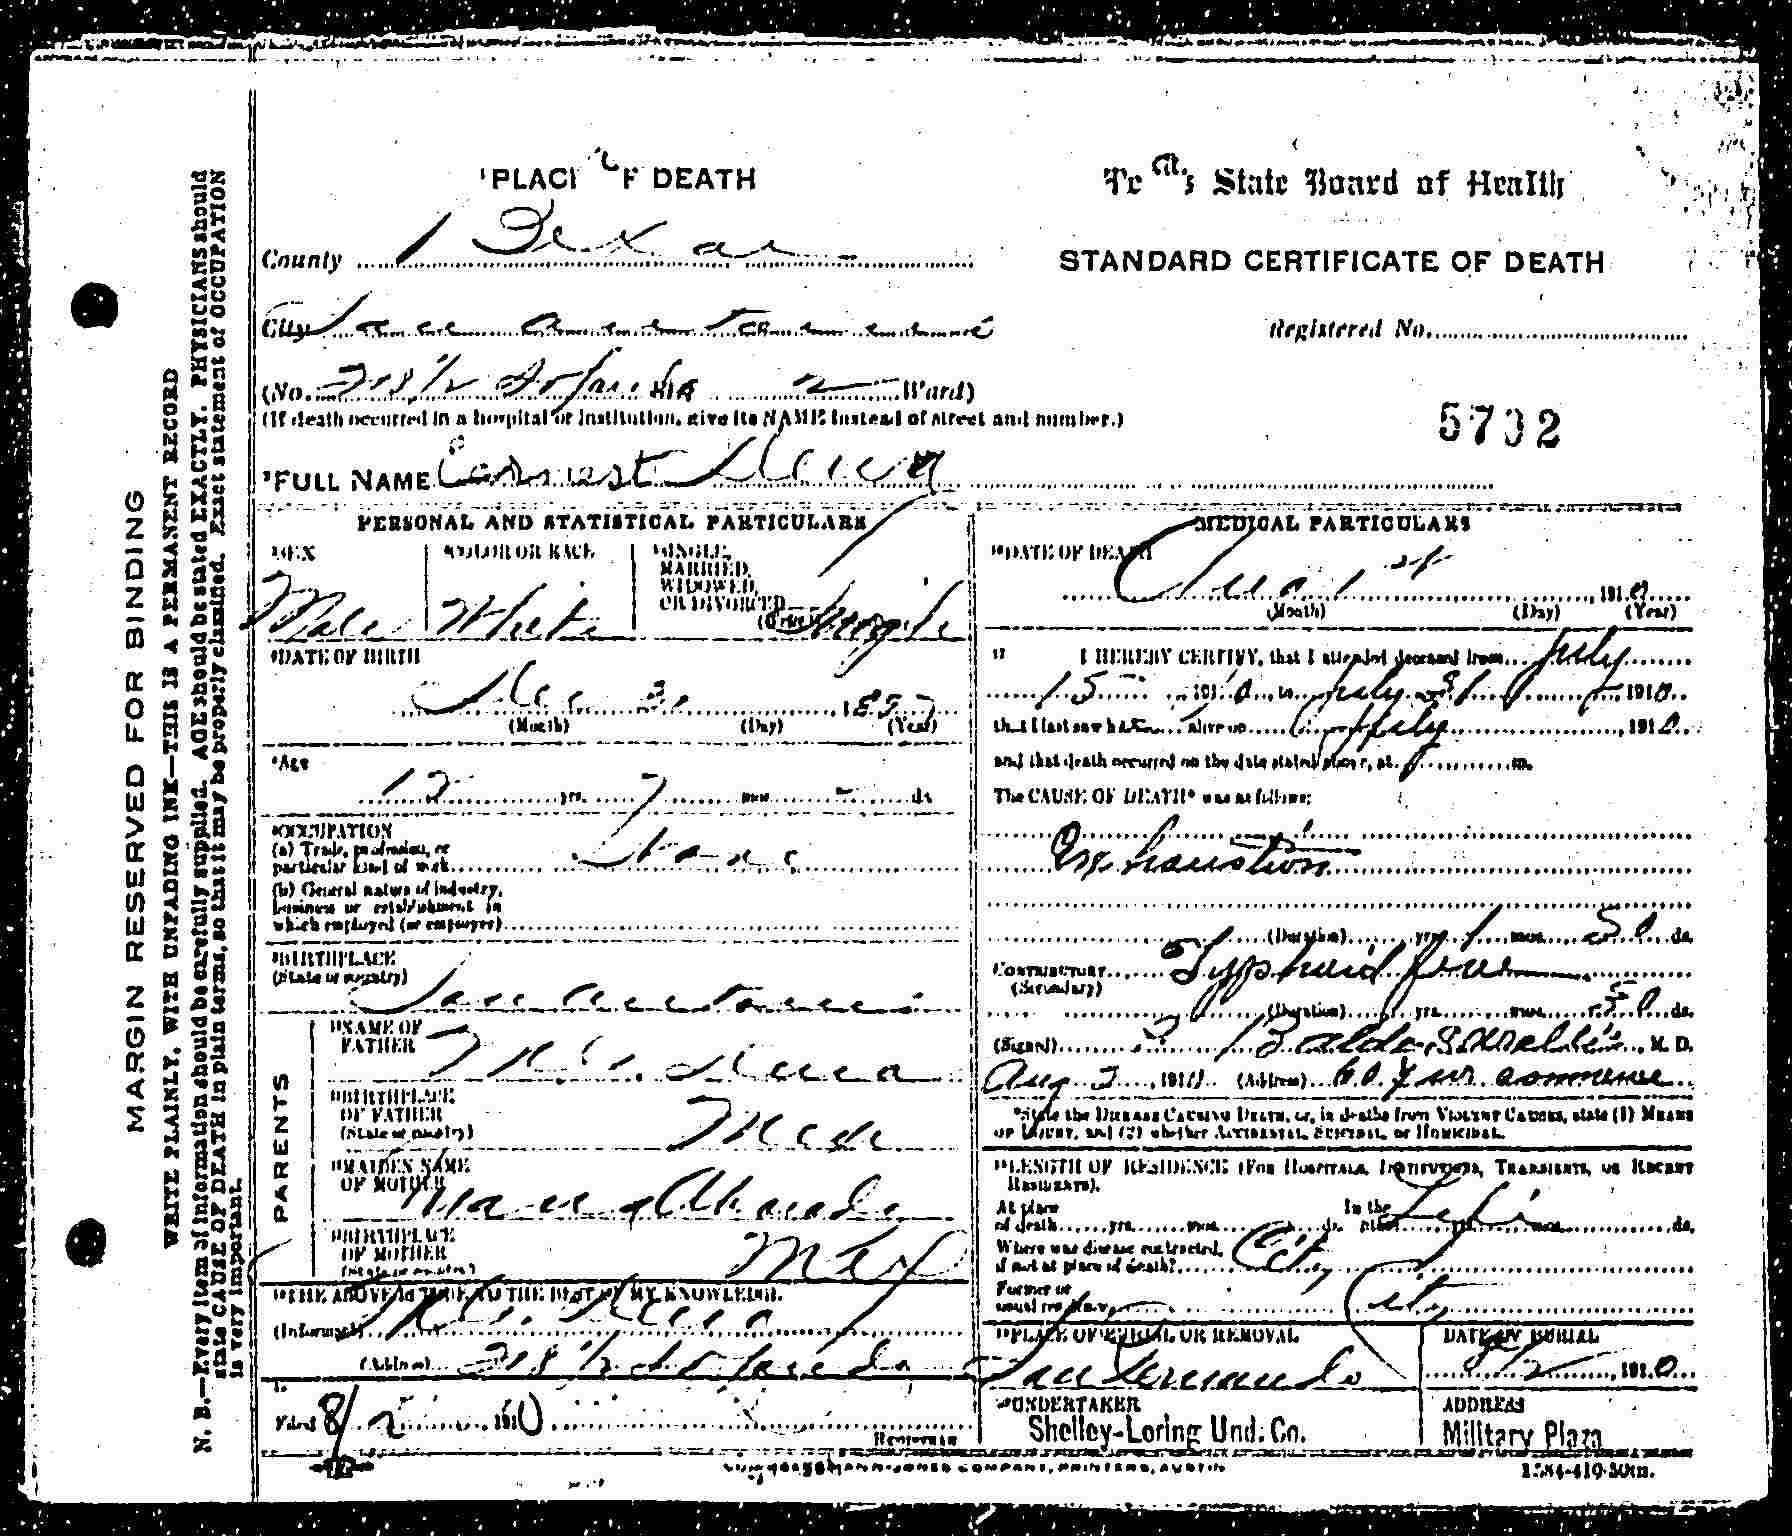 PLACE OF DEATH
Texas State Board of Health
County Bexar
STANDARD CERTIFICATE OF DEATH
City San Antonio
Registered No.
(No. 718½ So 2 Ward)
(If death occurred in a hospital or institution, give its NAME instead of street and number.)
5732
FULL NAME Earnest
PERSONAL AND STATISTICAL PARTICULARS
SEX
COLOR OR RACE
SINGLE, MARRIED, WIDOWED, OR DIVORCED
Male White Single
DATE OF BIRTH
(Month) (Day) (Year)
Age
12 yrs. 7 mos. - ds.
OCCUPATION
(a) Trade, profession, or
particular kind of work
(b) General nature of industry,
business or establishment in
which employed (or employer)
BIRTHPLACE
(State or country)
San Antonio
PARENTS
NAME OF FATHER
BIRTHPLACE OF FATHER
(State or country)
MAIDEN NAME OF MOTHER
BIRTHPLACE OF MOTHER
(State or country) Mex
THE ABOVE IS TRUE TO THE BEST OF MY KNOWLEDGE.
(Informant)
(Address) 718½ So
Filed 8/2 1910
Registrar
MEDICAL PARTICULARS
DATE OF DEATH
Aug 1st 1910
(Month) (Day) (Year)
I HEREBY CERTIFY, that I attended deceased from July
15 1910, to July 31 1910
that I last saw h alive on July 1910
and that death occurred on the date stated above, at m.
The CAUSE OF DEATH* was as follows:
Exhaustion
(Duration) yrs. mos. ds.
CONTRIBUTORY Typhoid fever
(Secondary)
(Duration) yrs. mos. ds.
(Signed) M. D.
Aug 2, 1910 (Address) commerce
*State the DISEASE CAUSING DEATH, or, in deaths from VIOLENT CAUSES, state (1) MEANS
OF INJURY, and (2) whether ACCIDENTAL, SUICIDAL, or HOMICIDAL.
LENGTH OF RESIDENCE (FOR HOSPITALS, INSTITUTIONS, TRANSIENTS, OR RECENT
RESIDENTS).
At place In the
of death yrs. mos. ds. State Life yrs. mos. ds.
Where was disease contracted,
if not at place of death? City
Former or
usual residence City
PLACE OF BURIAL OR REMOVAL
San Fernando
DATE OF BURIAL
8/2 1910
UNDERTAKER
Shelley-Loring Und. Co.
ADDRESS
Military Plaza
COMPANY, PRINTERS, AUSTIN
MARGIN RESERVED FOR BINDING
WRITE PLAINLY, WITH UNFADING INK—THIS IS A PERMANENT RECORD
N. B.—Every item of information should be carefully supplied. AGE should be stated EXACTLY. PHYSICIANS should
state CAUSE OF DEATH in plain terms, so that it may be properly classified. Exact statement of OCCUPATION
is very important.